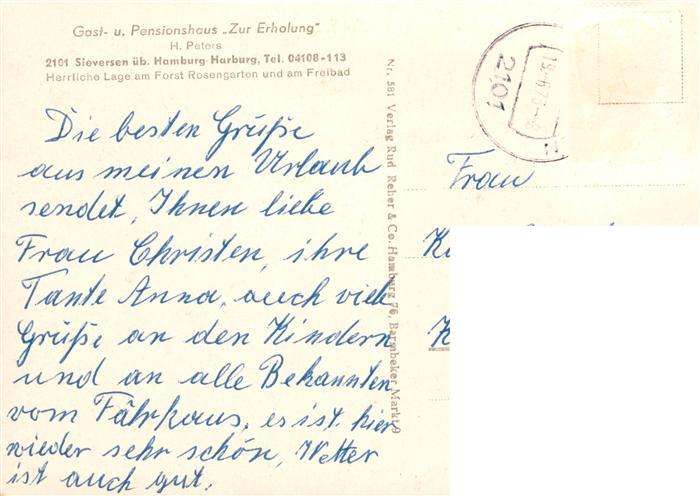 Gast- u. Pensionshaus „Zur Erholung"
H. Peters
2101 Sieversen üb. Hamburg-Harburg, Tel. 04108-113
Herrliche Lage am Forst Rosengarten und am Freibad
Die besten Grüße
aus meinen Urlaub
sendet, Ihnen liebe
Frau Christen, ihre
Tante Anna, auch viele
Grüße an den Kindern
und an alle Bekannten
vom Fährhaus, es ist hier
wieder sehr schön, Wetter
ist auch gut.
Nr. 581 Verlag Rud. Reher & Co. Hamburg 76, Barmbeker Markt 9
2101
Frau